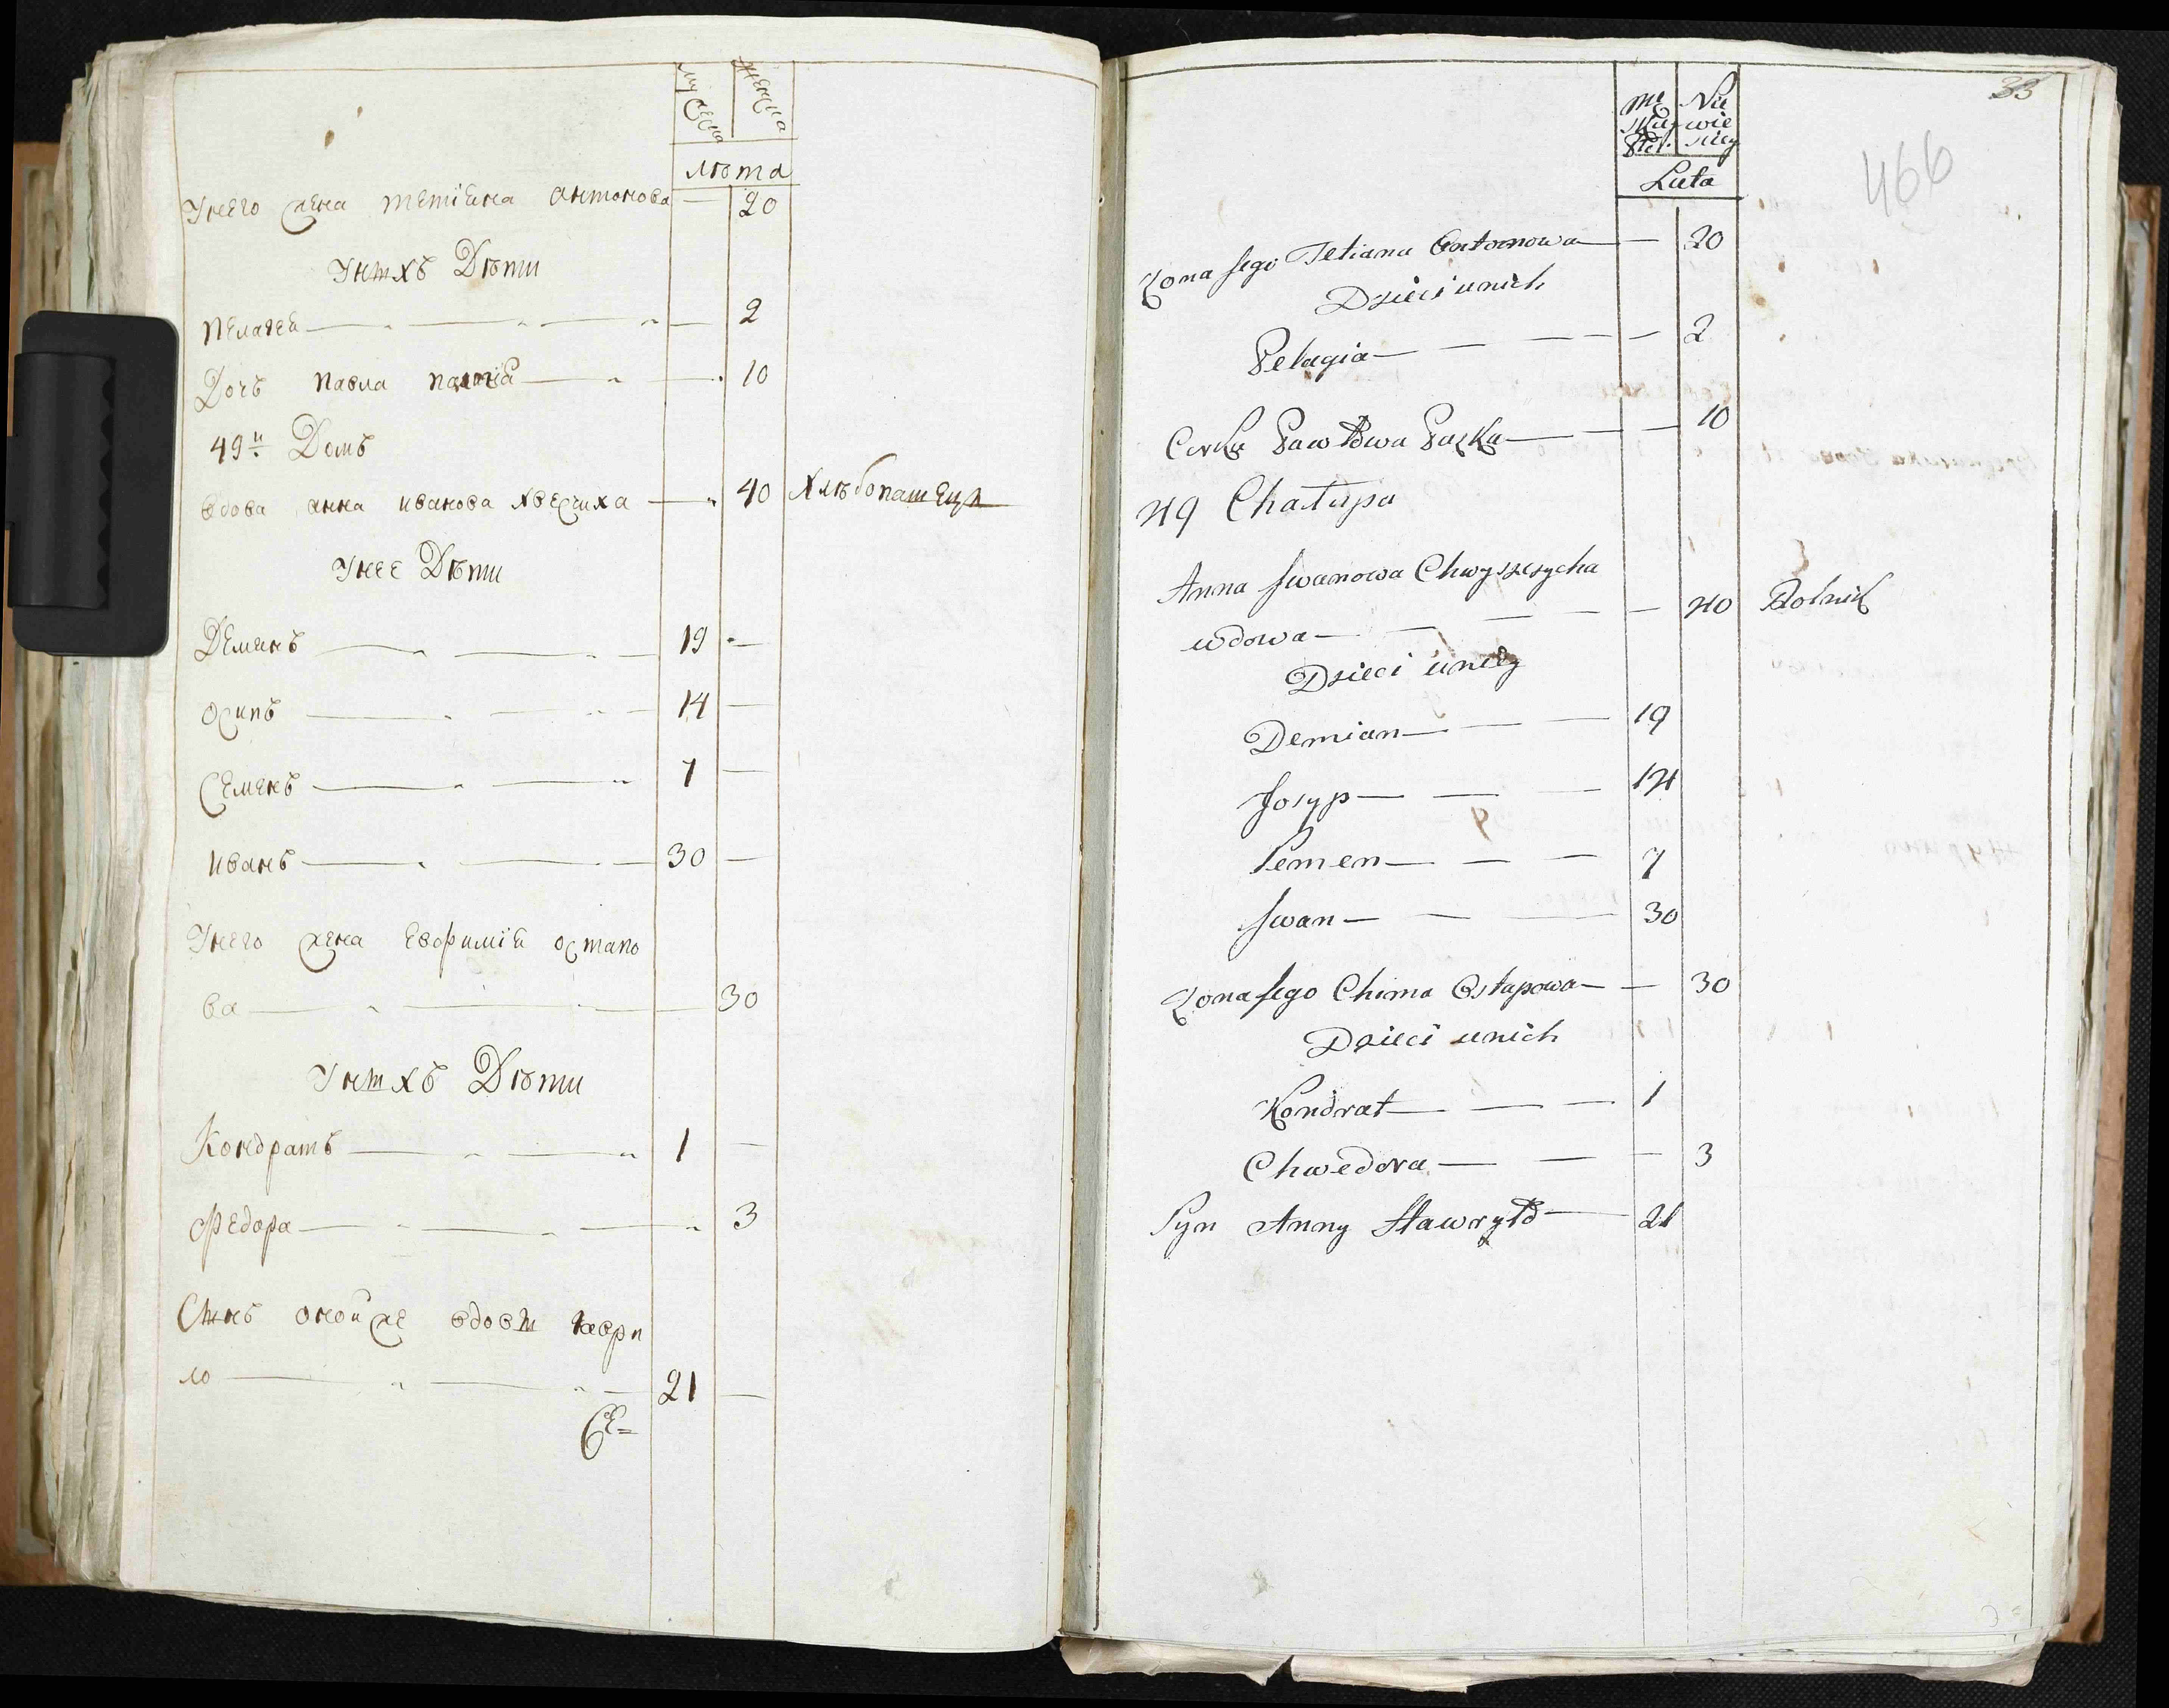 мужеска
женска
лѣта
Унего жена тетiана антонова — 20
Унихъ Дѣти
пелагея — 2
Дочъ павла — 10
49й Домъ
вдова анна иванова хвесиха — 40 хлѣбопашецъ
Унее Дѣти
Демянъ 19 —
осипъ 14 —
Семенъ 7 —
иванъ 30 —
Унего жена евфимiя остапо
ва — 30
Унихъ Дѣти
Кондратъ 1 —
Федора — 3
Сынъ оной же вдовы гаври
ло 21 —
Се=
33
466
Nie
wie
sciey
Lata
Zona Jego Tetiana Antonowa — 20
Dzieci unich
Pelagia — 2
Corka Pawłowa Parka — 10
49 Chałupa
Anna Iwanowa Chwyszczycha
wdowa — 40 Rolnik
Dzieci uniey
Demian — 19
Josyp — 14
Semen — 7
Iwan — 30
Zona Jego Chima Ostapowa — 30
Dzieci unich
Kondrat — 1
Chwedora — 3
Syn Anny Hawryło — 21